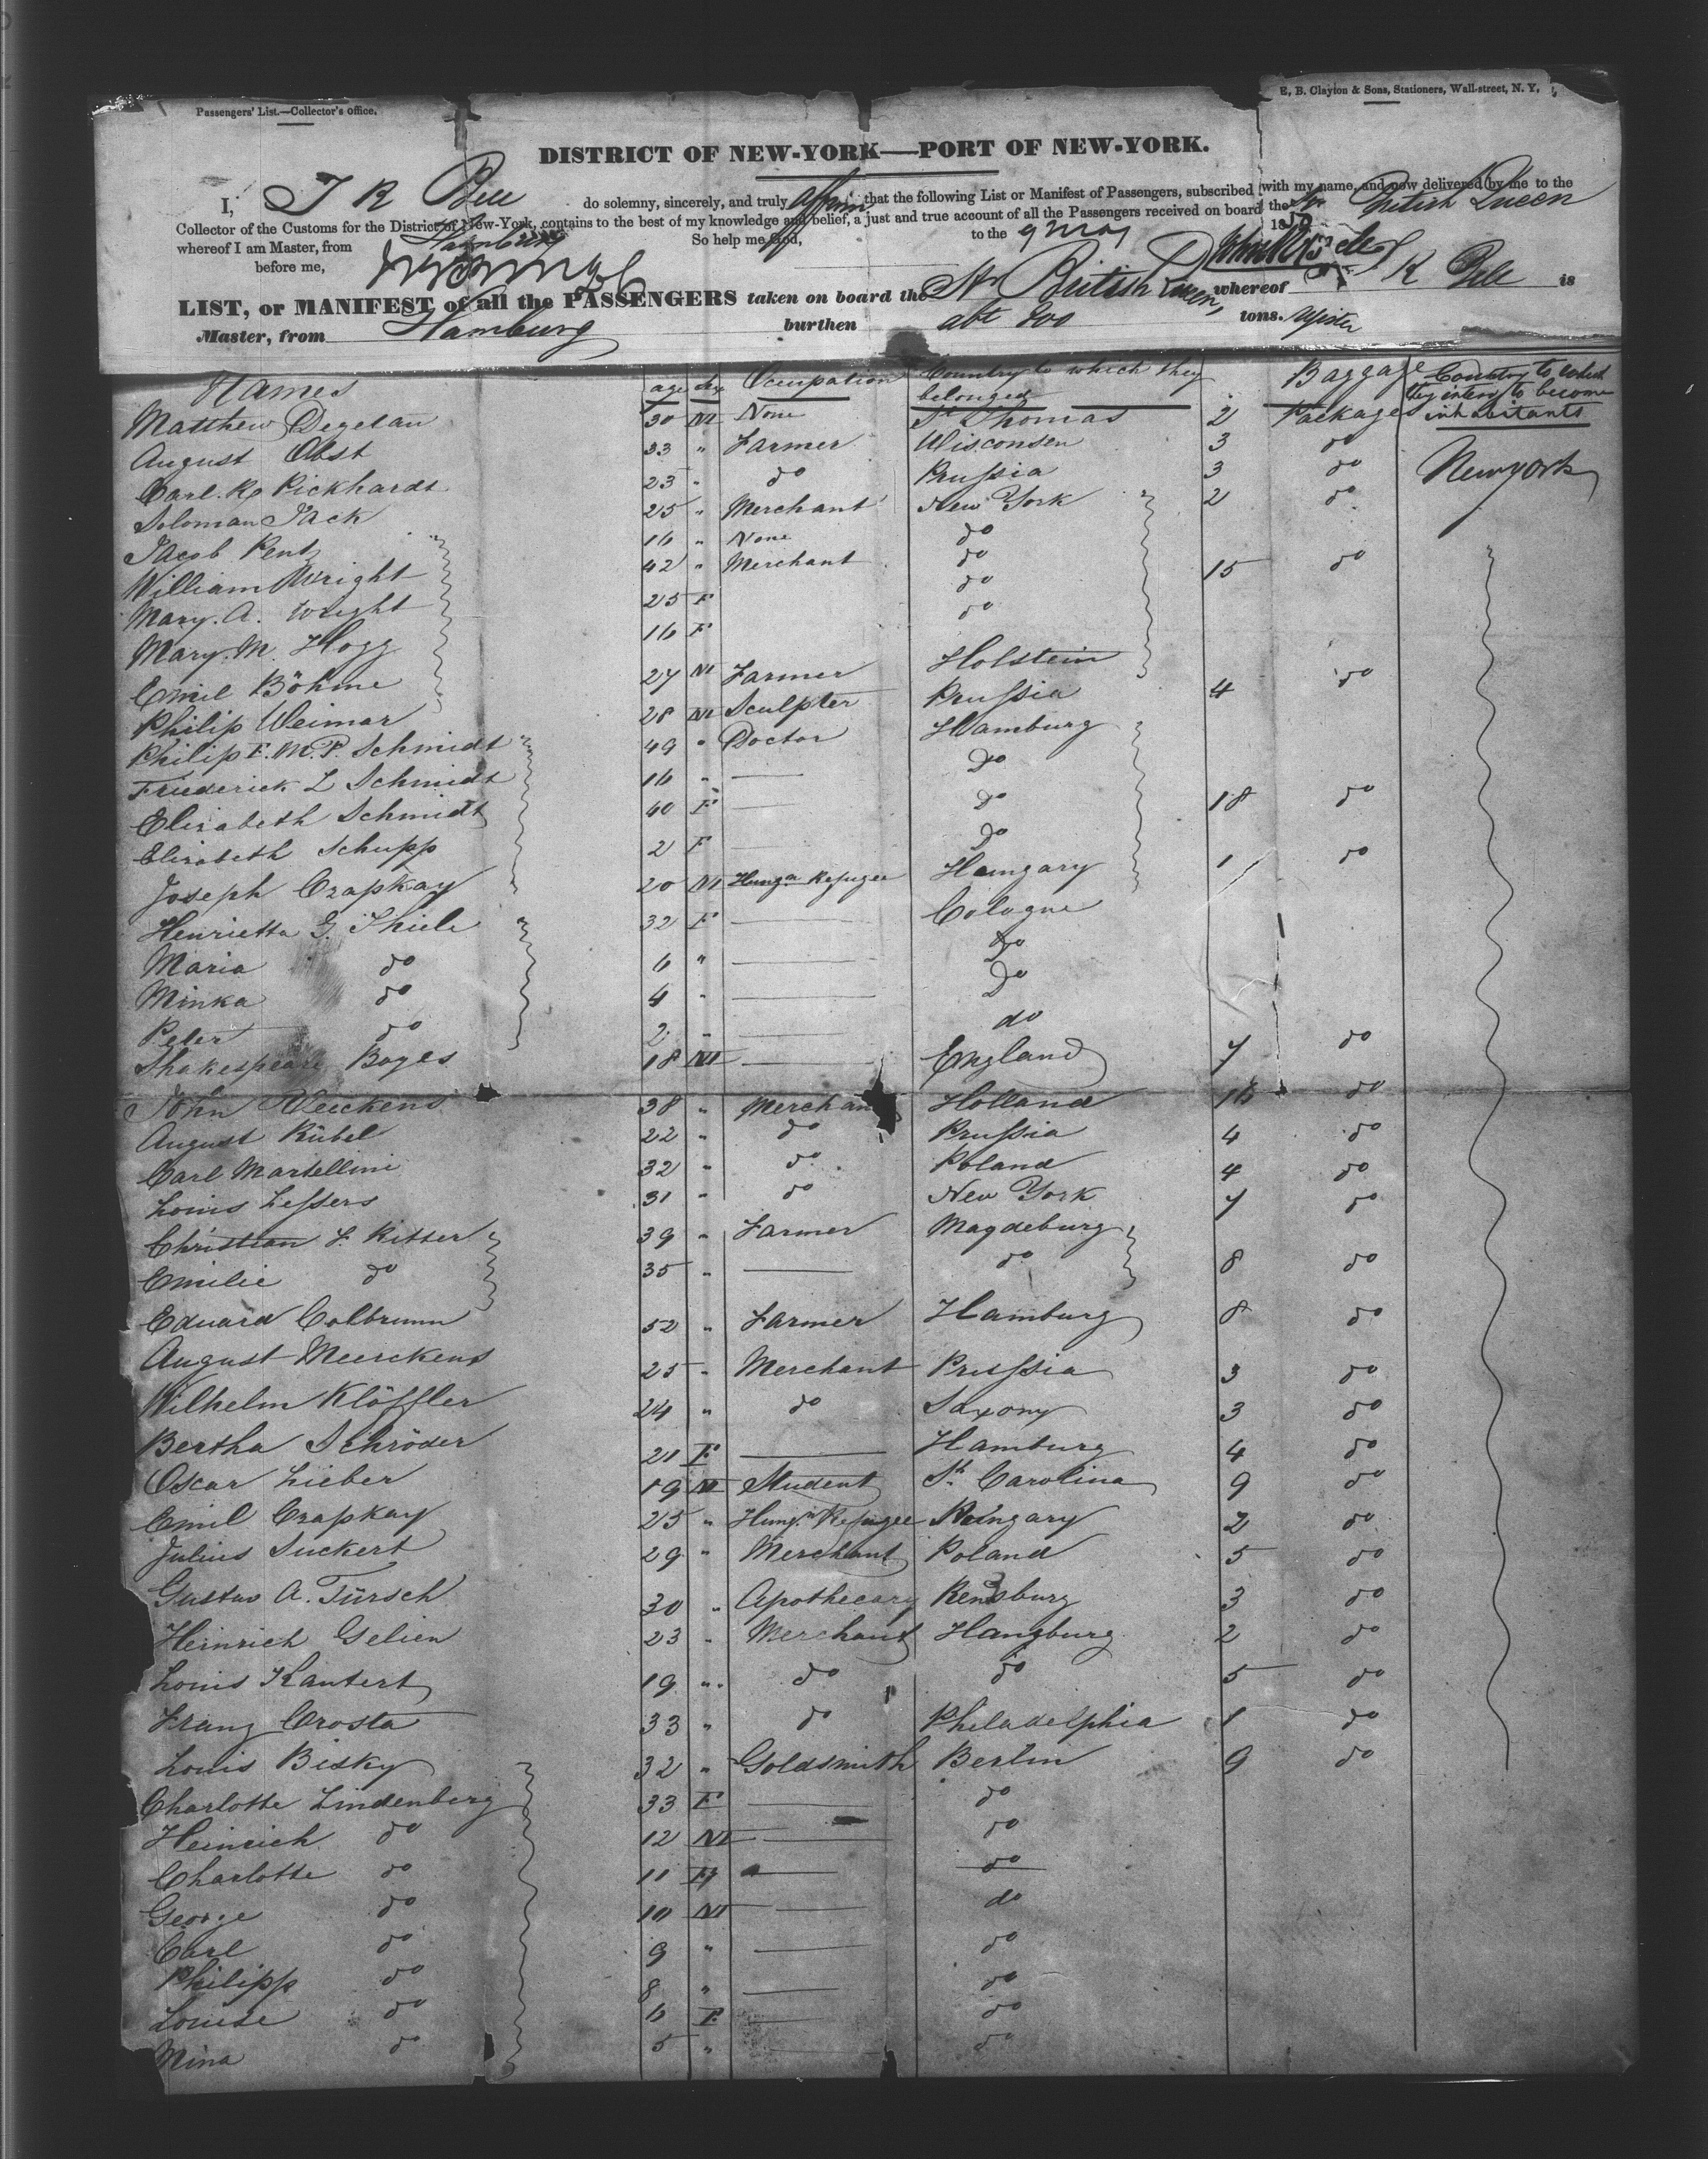 Passengers' List.—Collector's office.
E, B. Clayton & Sons, Stationers, Wall-street, N. Y.
DISTRICT OF NEW-YORK—PORT OF NEW-YORK.
I, J R Bell do solemny, sincerely, and truly affirm that the following List or Manifest of Passengers, subscribed with my name, and now delivered by me to the
Collector of the Customs for the District of New-York, contains to the best of my knowledge and belief, a just and true account of all the Passengers received on board the Str British Queen
whereof I am Master, from Hamburg So help me God, to the 9 May 1850
before me,
LIST, or MANIFEST of all the PASSENGERS taken on board the Str British Queen, whereof J R Bell is
Master, from Hamburg burthen abt 200 tons.
Names age sex Occupation Country to which they belonged Baggage Country to which they intend to become inhabitants
Matthew Degetau 30 M None St Thomas 2 Packages
August Obst 33 " Farmer Wisconsen 3 do
Carl. Rg Pickhardt 23 " do Prussia 3 do New york
Soloman Jack 25 " Merchant New York 2 do
Jacob Rentz 16 " None do
William Wright 42 " Merchant do 15 do
Mary. A. Wright 25 F do
Mary. M. Hogg 16 F do
Emil Böhme 27 M Farmer Holstein
Philip Weimar 28 M Sculpter Prussia 4 do
Philip F. M. P. Schmidt 49 " Doctor Hamburg
Friederick L Schmidt 16 " — do
Elisabeth Schmidt 40 F — do 18 do
Elisabeth Schupp 2 F do
Joseph Czapkay 20 M Hunga Refugee Hungary 1 do
Henrietta G. Thiele 32 F — Cologne
Maria do 6 " — do
Minka do 4 " — do
Peter do 2 " — do
Shakespeare Boyes 18 M — England 7 do
John Meickens 38 " Merchant Holland 16 do
August Rübel 22 " do Prussia 4 do
Carl Martellini 32 " do Poland 4 do
Louis Lessers 31 " do New York 7 do
Christian F. Ritter 39 " Farmer Magdeburg
Emilie do 35 " — do 8 do
Eduard Colbrunn 52 " Farmer Hamburg 8 do
August Meerckens 25 " Merchant Prussia 3 do
Wilhelm Klöffler 24 " do Saxony 3 do
Bertha Schröder 21 F — Hamburg 4 do
Oscar Lieber 19 M Student Sth Carolina 9 do
Emil Czapkay 25 " Hungn Refugee Hungary 2 do
Julius Suckert 29 " Merchant Poland 5 do
Gustav A. Türsch 30 " Apothecary Rendsburg 3 do
Heinrich Gelien 23 " Merchant Hamburg 2 do
Louis Kautert 19 " do do 5 do
Franz Crosta 33 " do Philadelphia 1 do
Louis Bisky 32 " Goldsmith Berlin 9 do
Charlotte Lindenberg 33 F — do
Heinrich do 12 M — do
Charlotte do 11 F — do
George do 10 M — do
Carl do 9 " — do
Philipp do 8 " — do
Louise do 6 F — do
Mina do 5 " — do